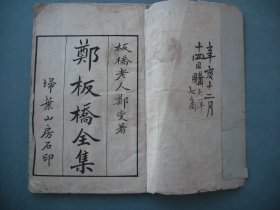 板橋老人鄭燮著
鄭板橋全集
掃葉山房石印
辛亥十二月
十四日購